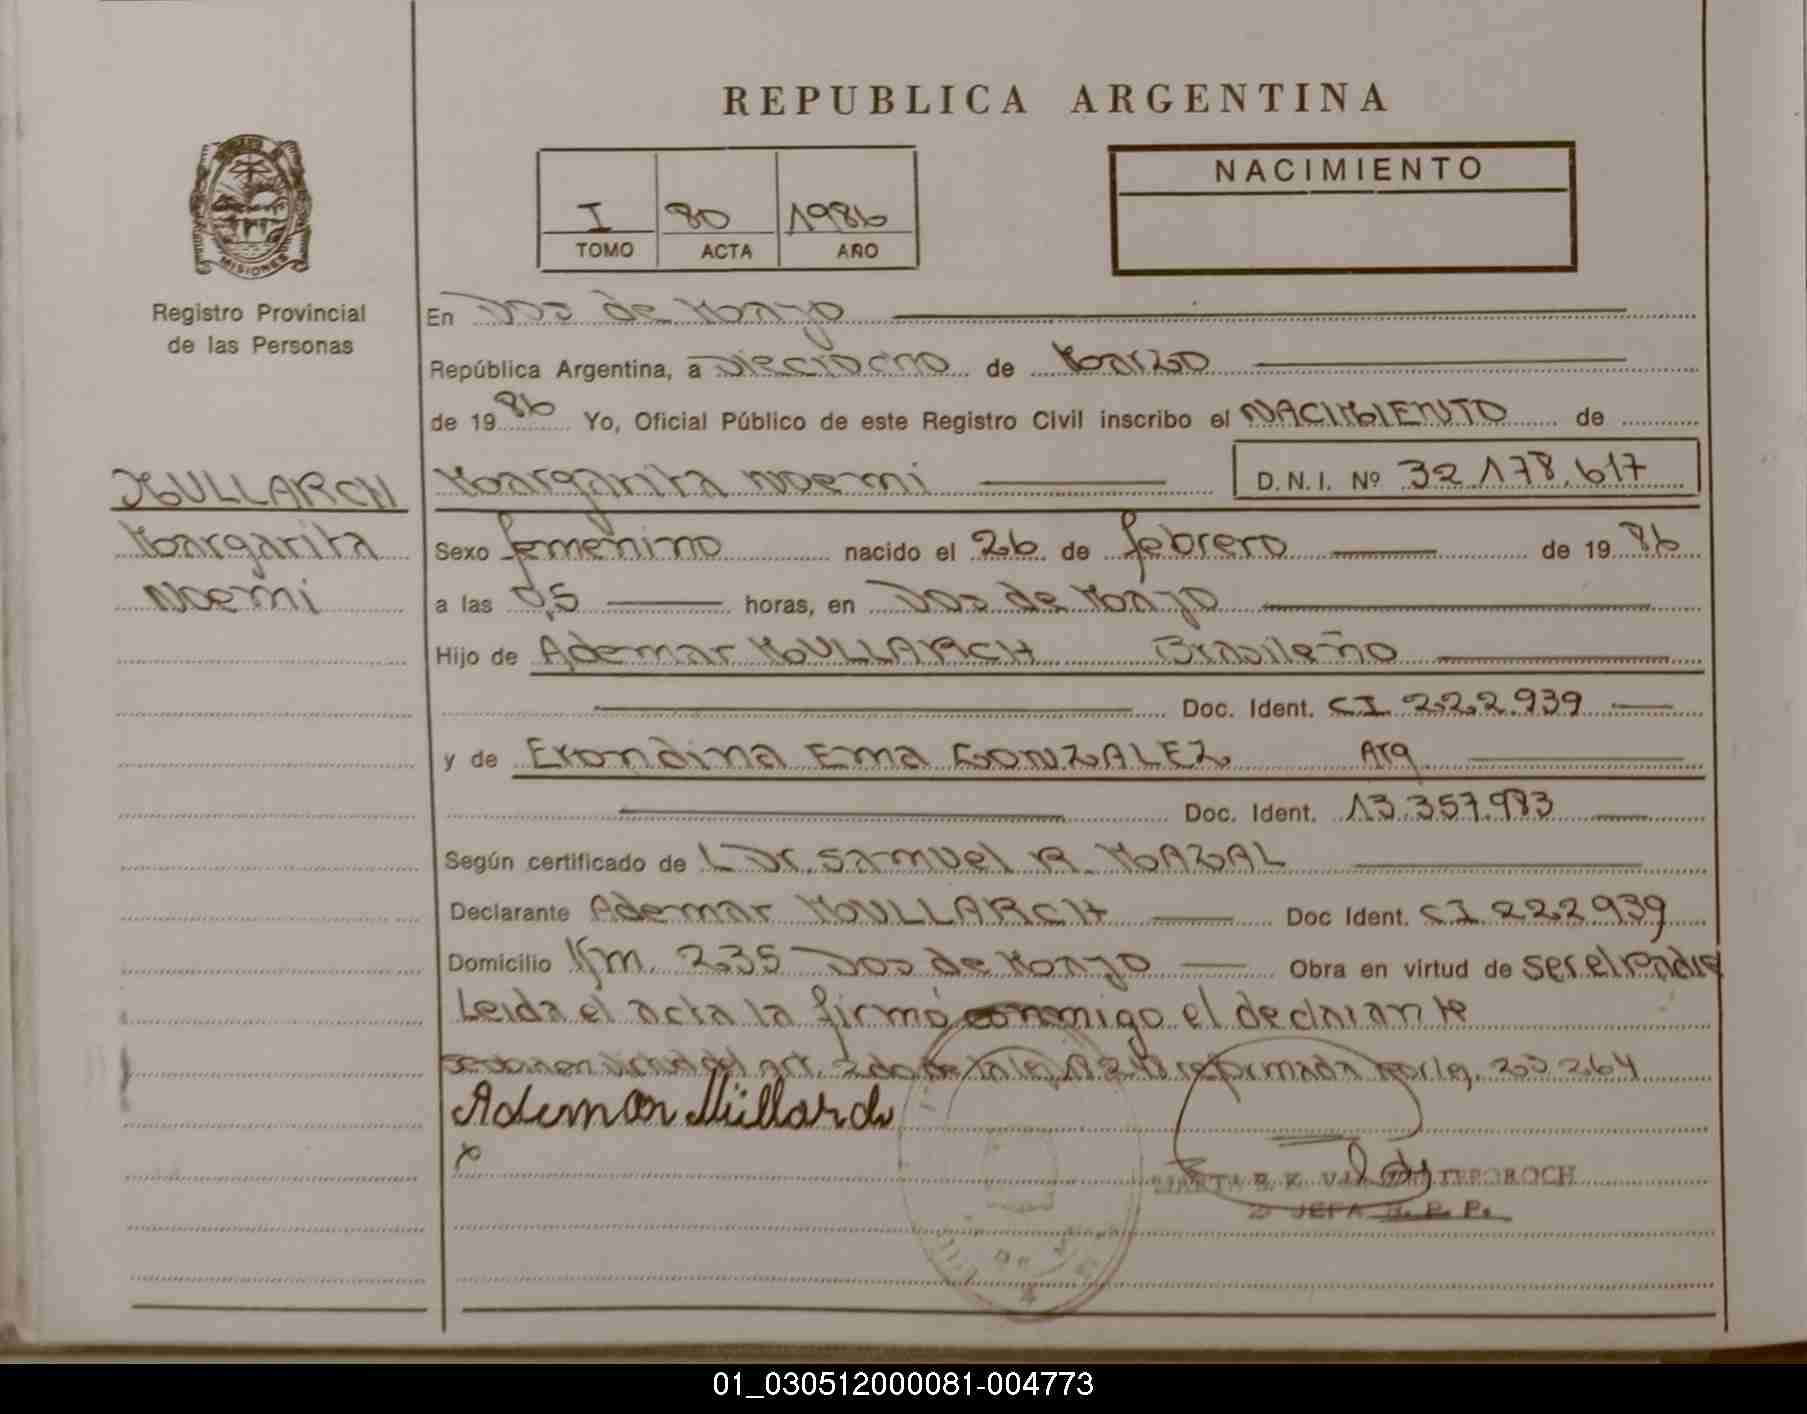 REPUBLICA ARGENTINA
NACIMIENTO
I 80 1986
TOMO ACTA AÑO
MISIONES
Registro Provincial
de las Personas
En Dos de Mayo
República Argentina, a Dieciocho de Marzo
de 1986 Yo, Oficial Público de este Registro Civil inscribo el NACIMIENTO de
MULLARCH
Margarita
Noemi
Margarita Noemi D.N.I. Nº 32.178.617
Sexo femenino nacido el 26 de febrero de 1986
a las 0,5 horas, en Dos de Mayo
Hijo de Ademar MULLARCH Brasileño
Doc. Ident. CI 222.939
y de Erondina Ema GONZALEZ Arg
Doc. Ident. 13.357.983
Según certificado de L Dr. Samuel R. MAZAL
Declarante Ademar MULLARCH Doc Ident. CI 222939
Domicilio Km. 235 Dos de Mayo Obra en virtud de ser el padre
Leida el acta la firmó conmigo el declarante
en virtud del art. 2do de la ley reformada por ley. 20264
Ademar Müllarch
x
MARTA B. K. V
JEFA R. P. P.
01_030512000081-004773